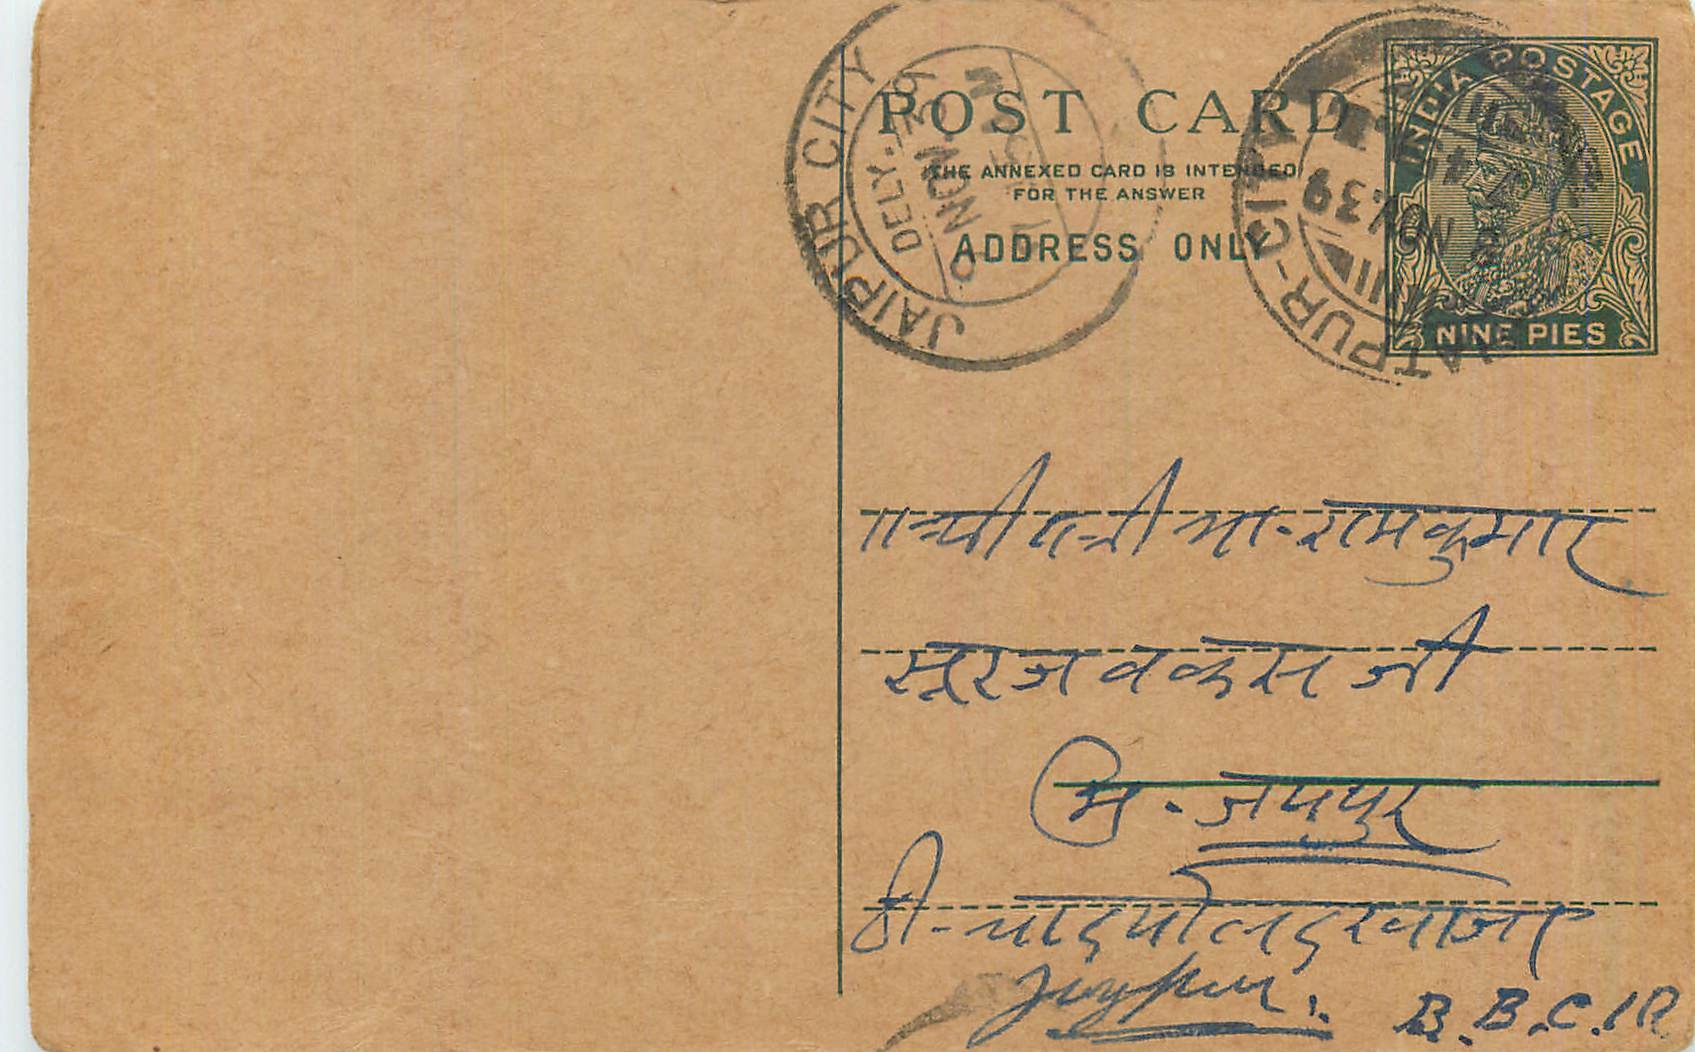 POST CARD
THE ANNEXED CARD IS INTENDED
FOR THE ANSWER
ADDRESS ONLY
INDIA POSTAGE
NINE PIES
JAIPUR CITY
DELY.
NOV. 39
रामकुमार
सूरज वकस जी
जयपुर
ठी - चादपोल दरवाजा
Jaypur.
B. B. C. I R